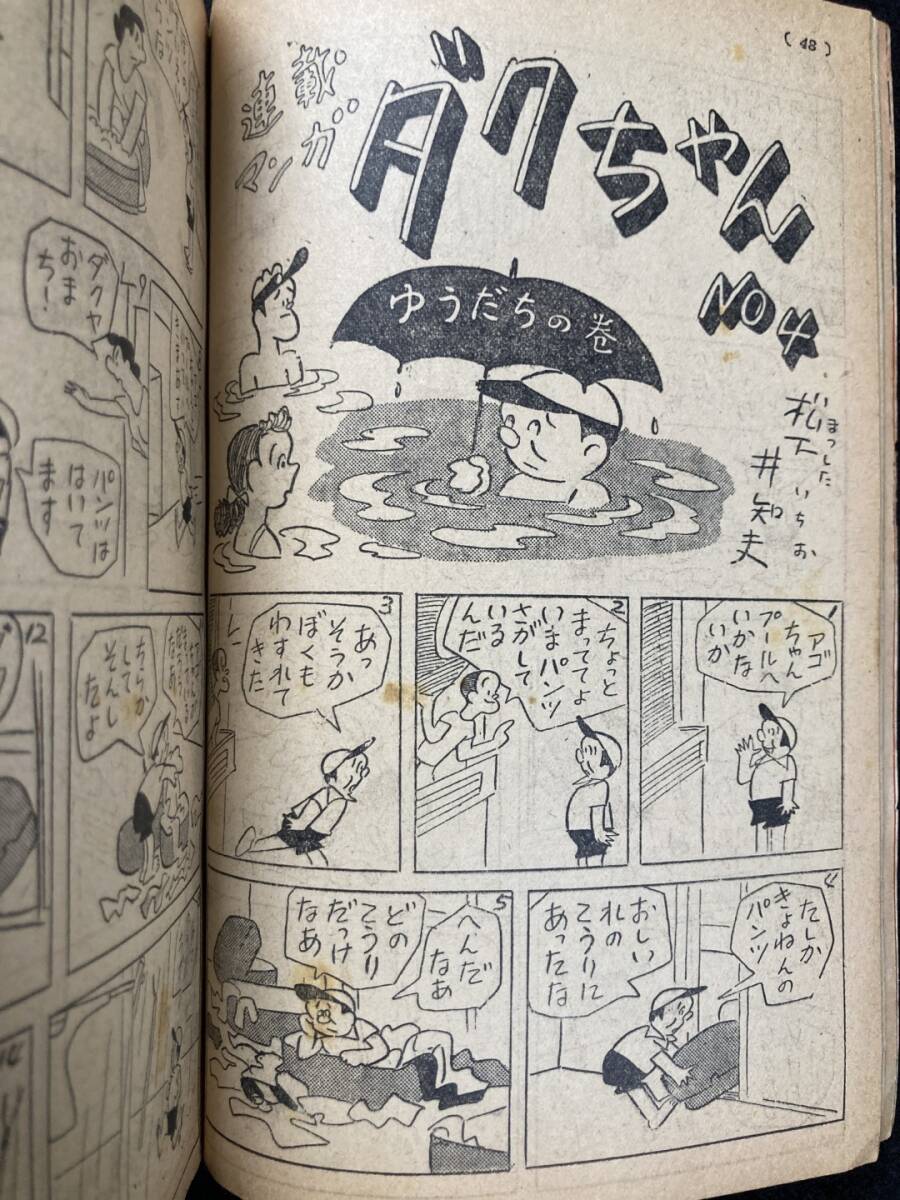 (48)
連載
マンガ
ダクちゃん
NO4
ゆうだちの巻
まつした いちお
松下井知夫
1
アゴ
ちゃん
プールへ
いかな
いか
2
ちょっと
まっててよ
いまパンツ
さがして
いる
んだ
3
あっ
そうか
ぼくも
わすれて
きた
4
たしか
きょねんの
パンツ
おしい
れの
こうりに
あったな
5
へんだ
なあ
どの
こうり
だっけ
なあ
ダクや
おま
ち!
パンツは
はいて
ます
12
ちらか
して
そんし
たよ
14